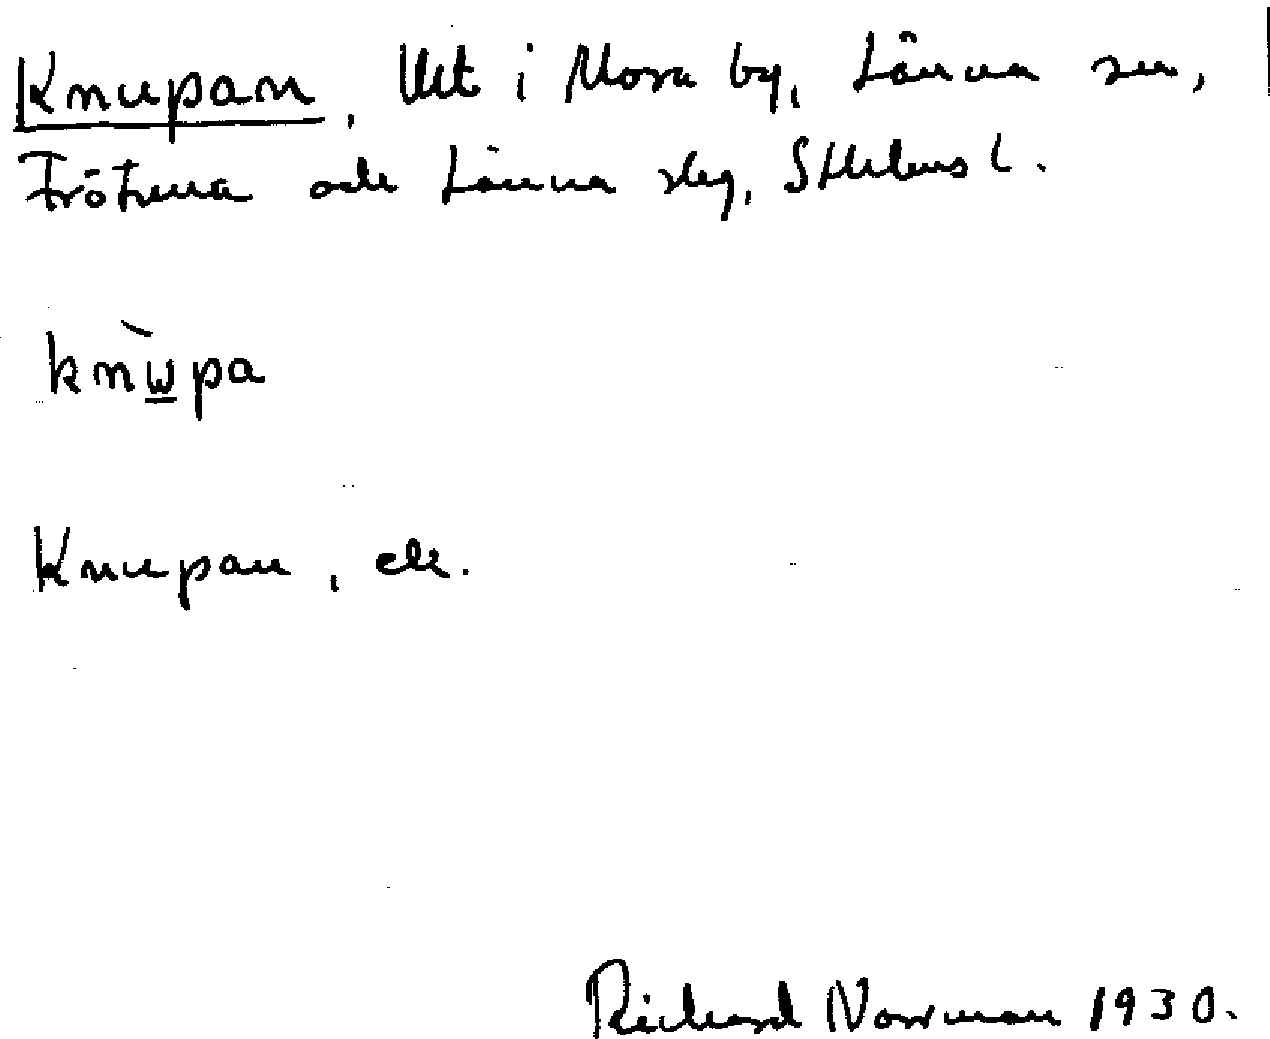 Knupan, Utt i Mora by, Länna sn,
Frötuna och Länna slg, Sthlms l.
knùpa
Knupan, ek.
Richard Norrman 1930.